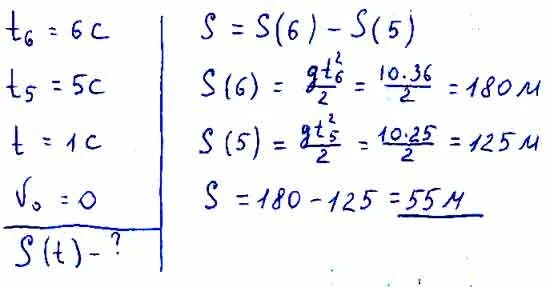 t₆ = 6с
t₅ = 5с
t = 1с
V₀ = 0
S(t) - ?
S = S(6) - S(5)
S(6) = gt₆²/2 = 10·36/2 = 180 м
S(5) = gt₅²/2 = 10·25/2 = 125 м
S = 180 - 125 = 55 м